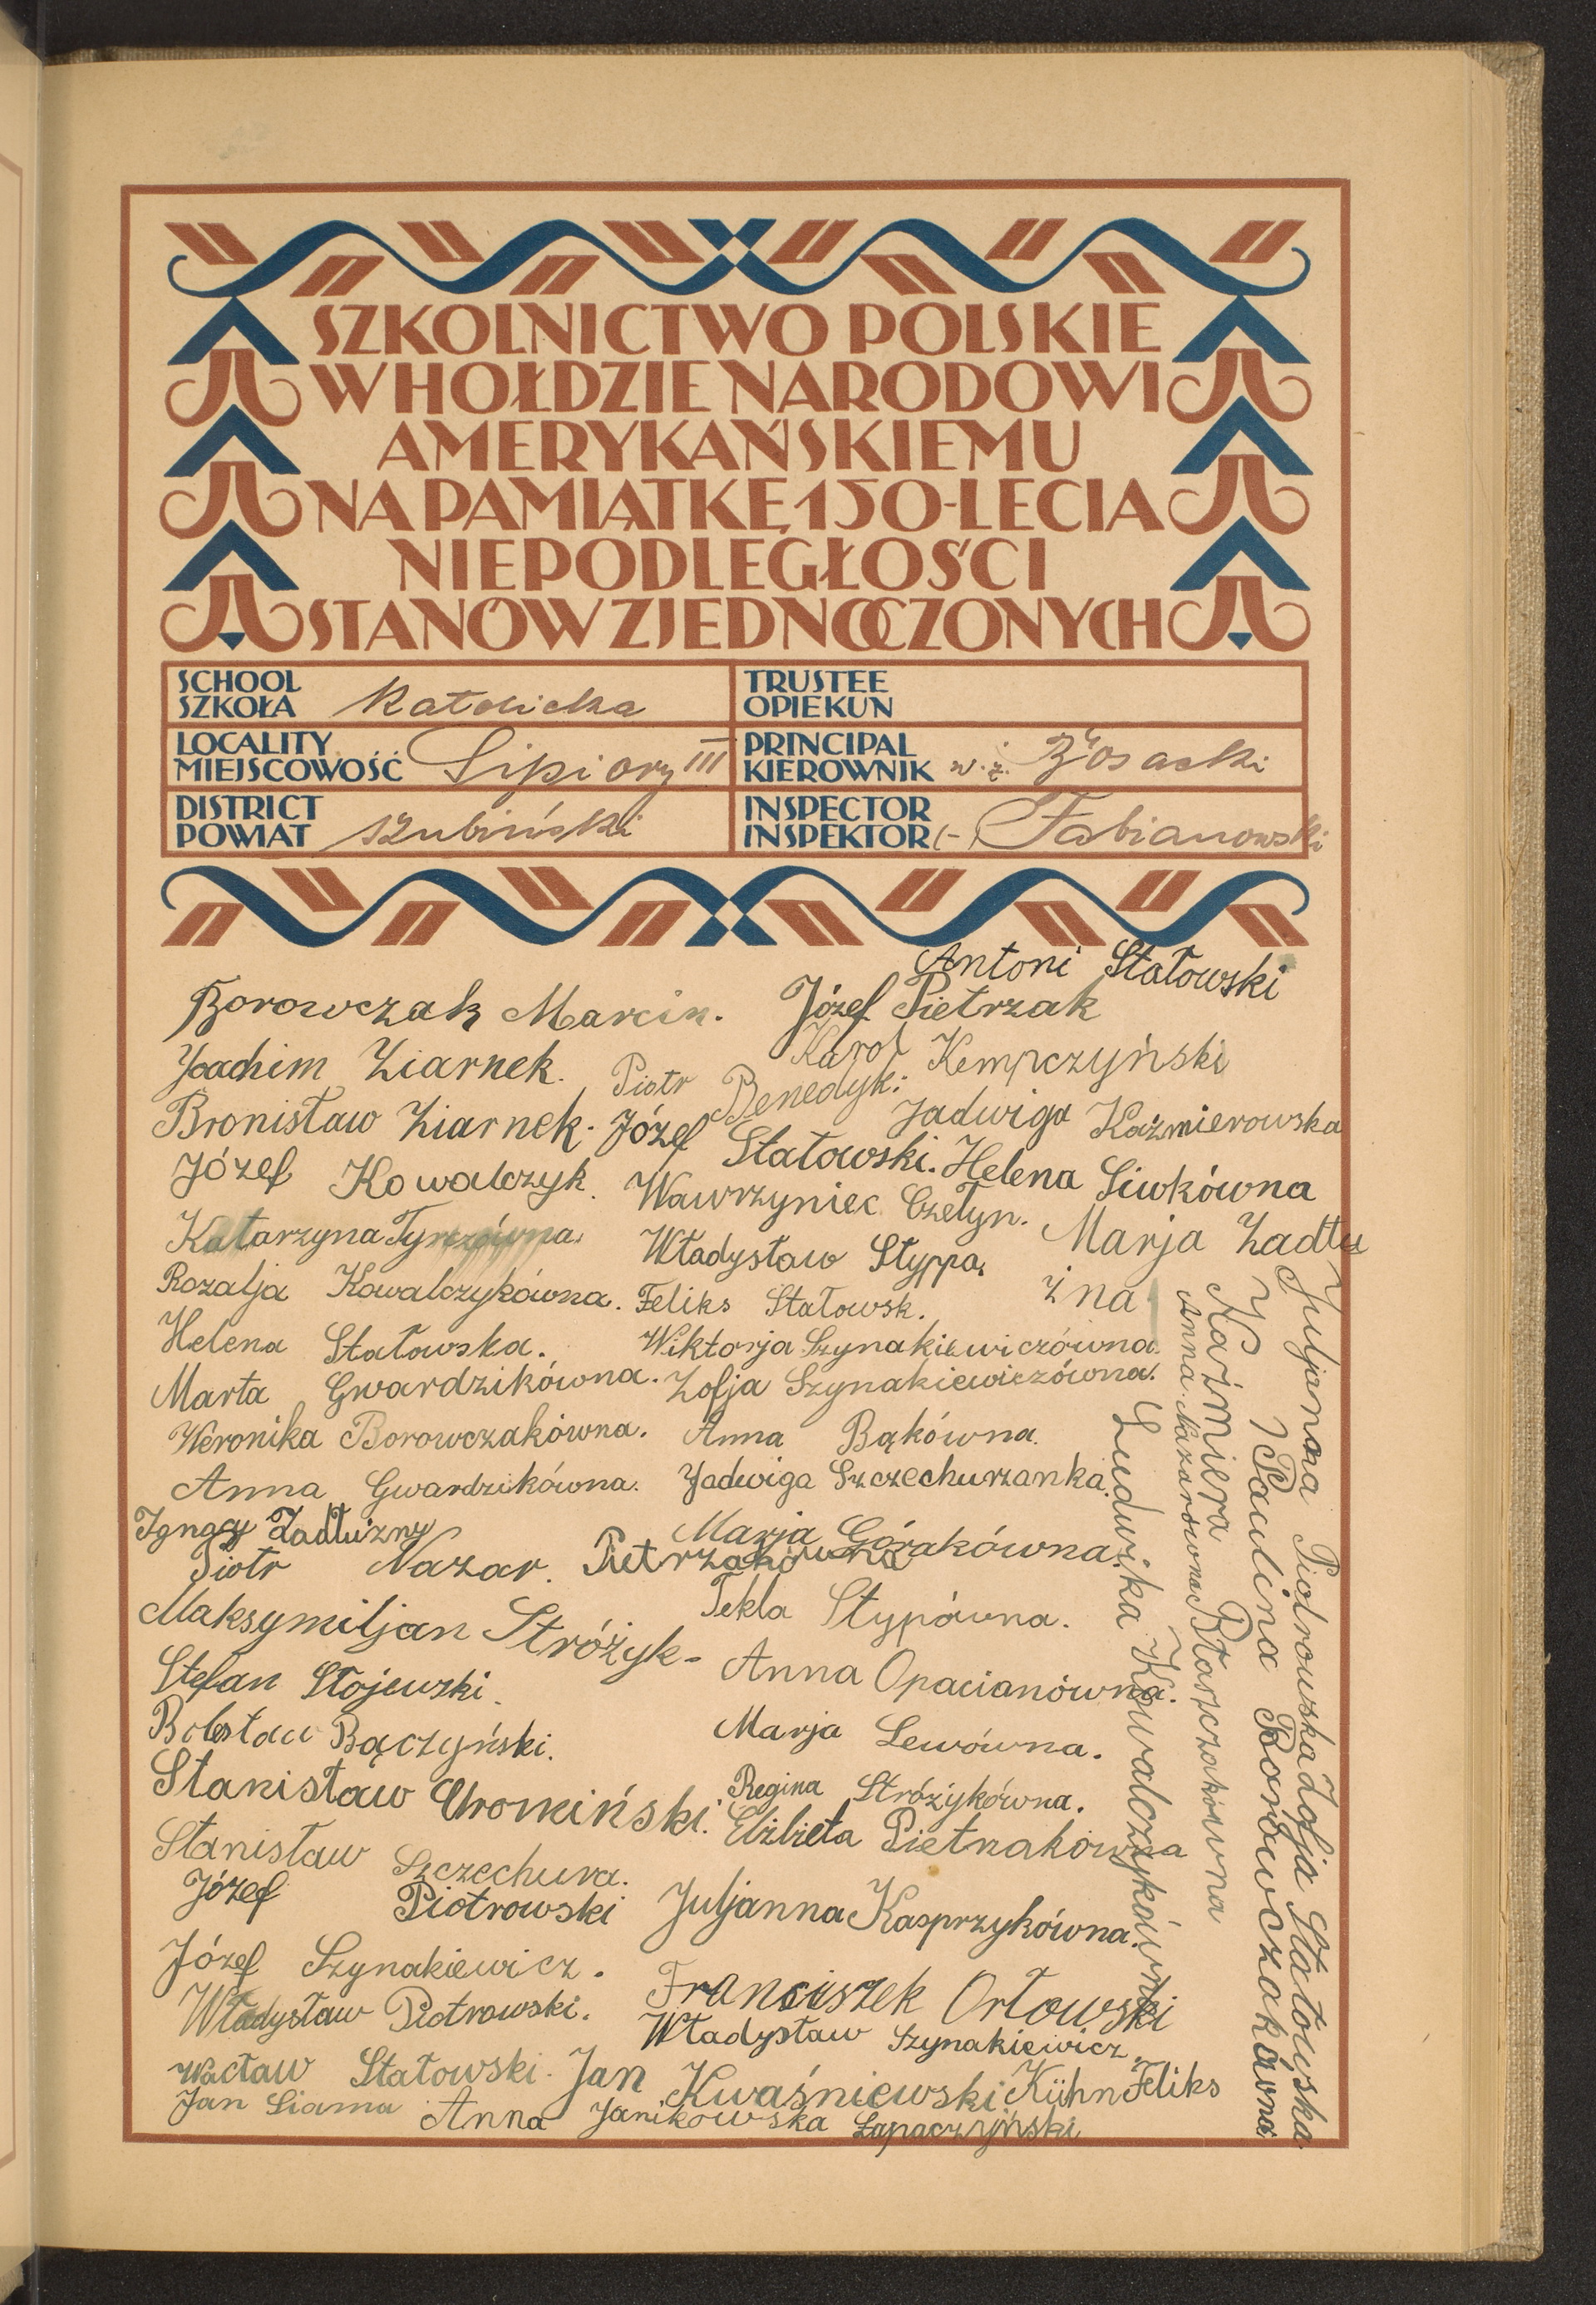 SZKOLNICTWO POLSKIE
W HOŁDZIE NARODOWI
AMERYKAŃSKIEMU
NA PAMIĄTKĘ 150-LECIA
NIEPODLEGŁOŚCI
STANÓW ZJEDNOCZONYCH
SCHOOL
SZKOŁA Katolicka
TRUSTEE
OPIEKUN
LOCALITY
MIEJSCOWOŚĆ Lipiory III
PRINCIPAL
KIEROWNIK w. z.
DISTRICT
POWIAT szubiński
INSPECTOR
INSPEKTOR (-) Fabianowski
Antoni Statowski
Borowczak Marcin. Józef Pietrzak
Karol Kempczyński
Joachim Ziarnek. Piotr Benedyk.
Jadwiga Kaźmierowska
Bronisław Ziarnek. Józef Statowski. Helena Siwkówna
Józef Kowalczyk. Wawrzyniec Czetyn. Marja Zadłu
żna
Katarzyna
Władysław Styppa.
Rozalja Kowalczykówna. Feliks Statowsk.
Helena Statowska. Wiktorja Szynakiewiczówna.
Marta Gwardzikówna. Zofja Szynakiewiczówna.
Weronika Borowczakówna. Anna Bąkówna.
Anna Gwardzikówna. Jadwiga Szczechurzanka.
Ignacy Zadłużny Marja Górakówna.
Piotr Nazar. Pietrzakówna
Maksymiljan Stróżyk- Tekla Stypówna.
Stefan Stojewski. Anna Opacianówna.
Bolesław Bączyński. Marja Lewówna.
Stanisław Chromiński. Regina Stróżykówna.
Elżbieta Pietrzakówna
Stanisław Szczechura.
Józef Piotrowski Juljanna Kasprzykówna.
Józef Szynakiewicz. Franciszek Orłowski
Władysław Piotrowski. Władysław Szynakiewicz.
Wacław Statowski. Jan Kwaśniewski Kühn Feliks
Jan Siama Anna Janikowska Łapaczyński
Ludwika Kowalczykówna
Anna Nazarówna
Kaźmiera Błaszczakówna
Paulina Borowczakówna
Juljanna Piotrowska Zofja Statowska